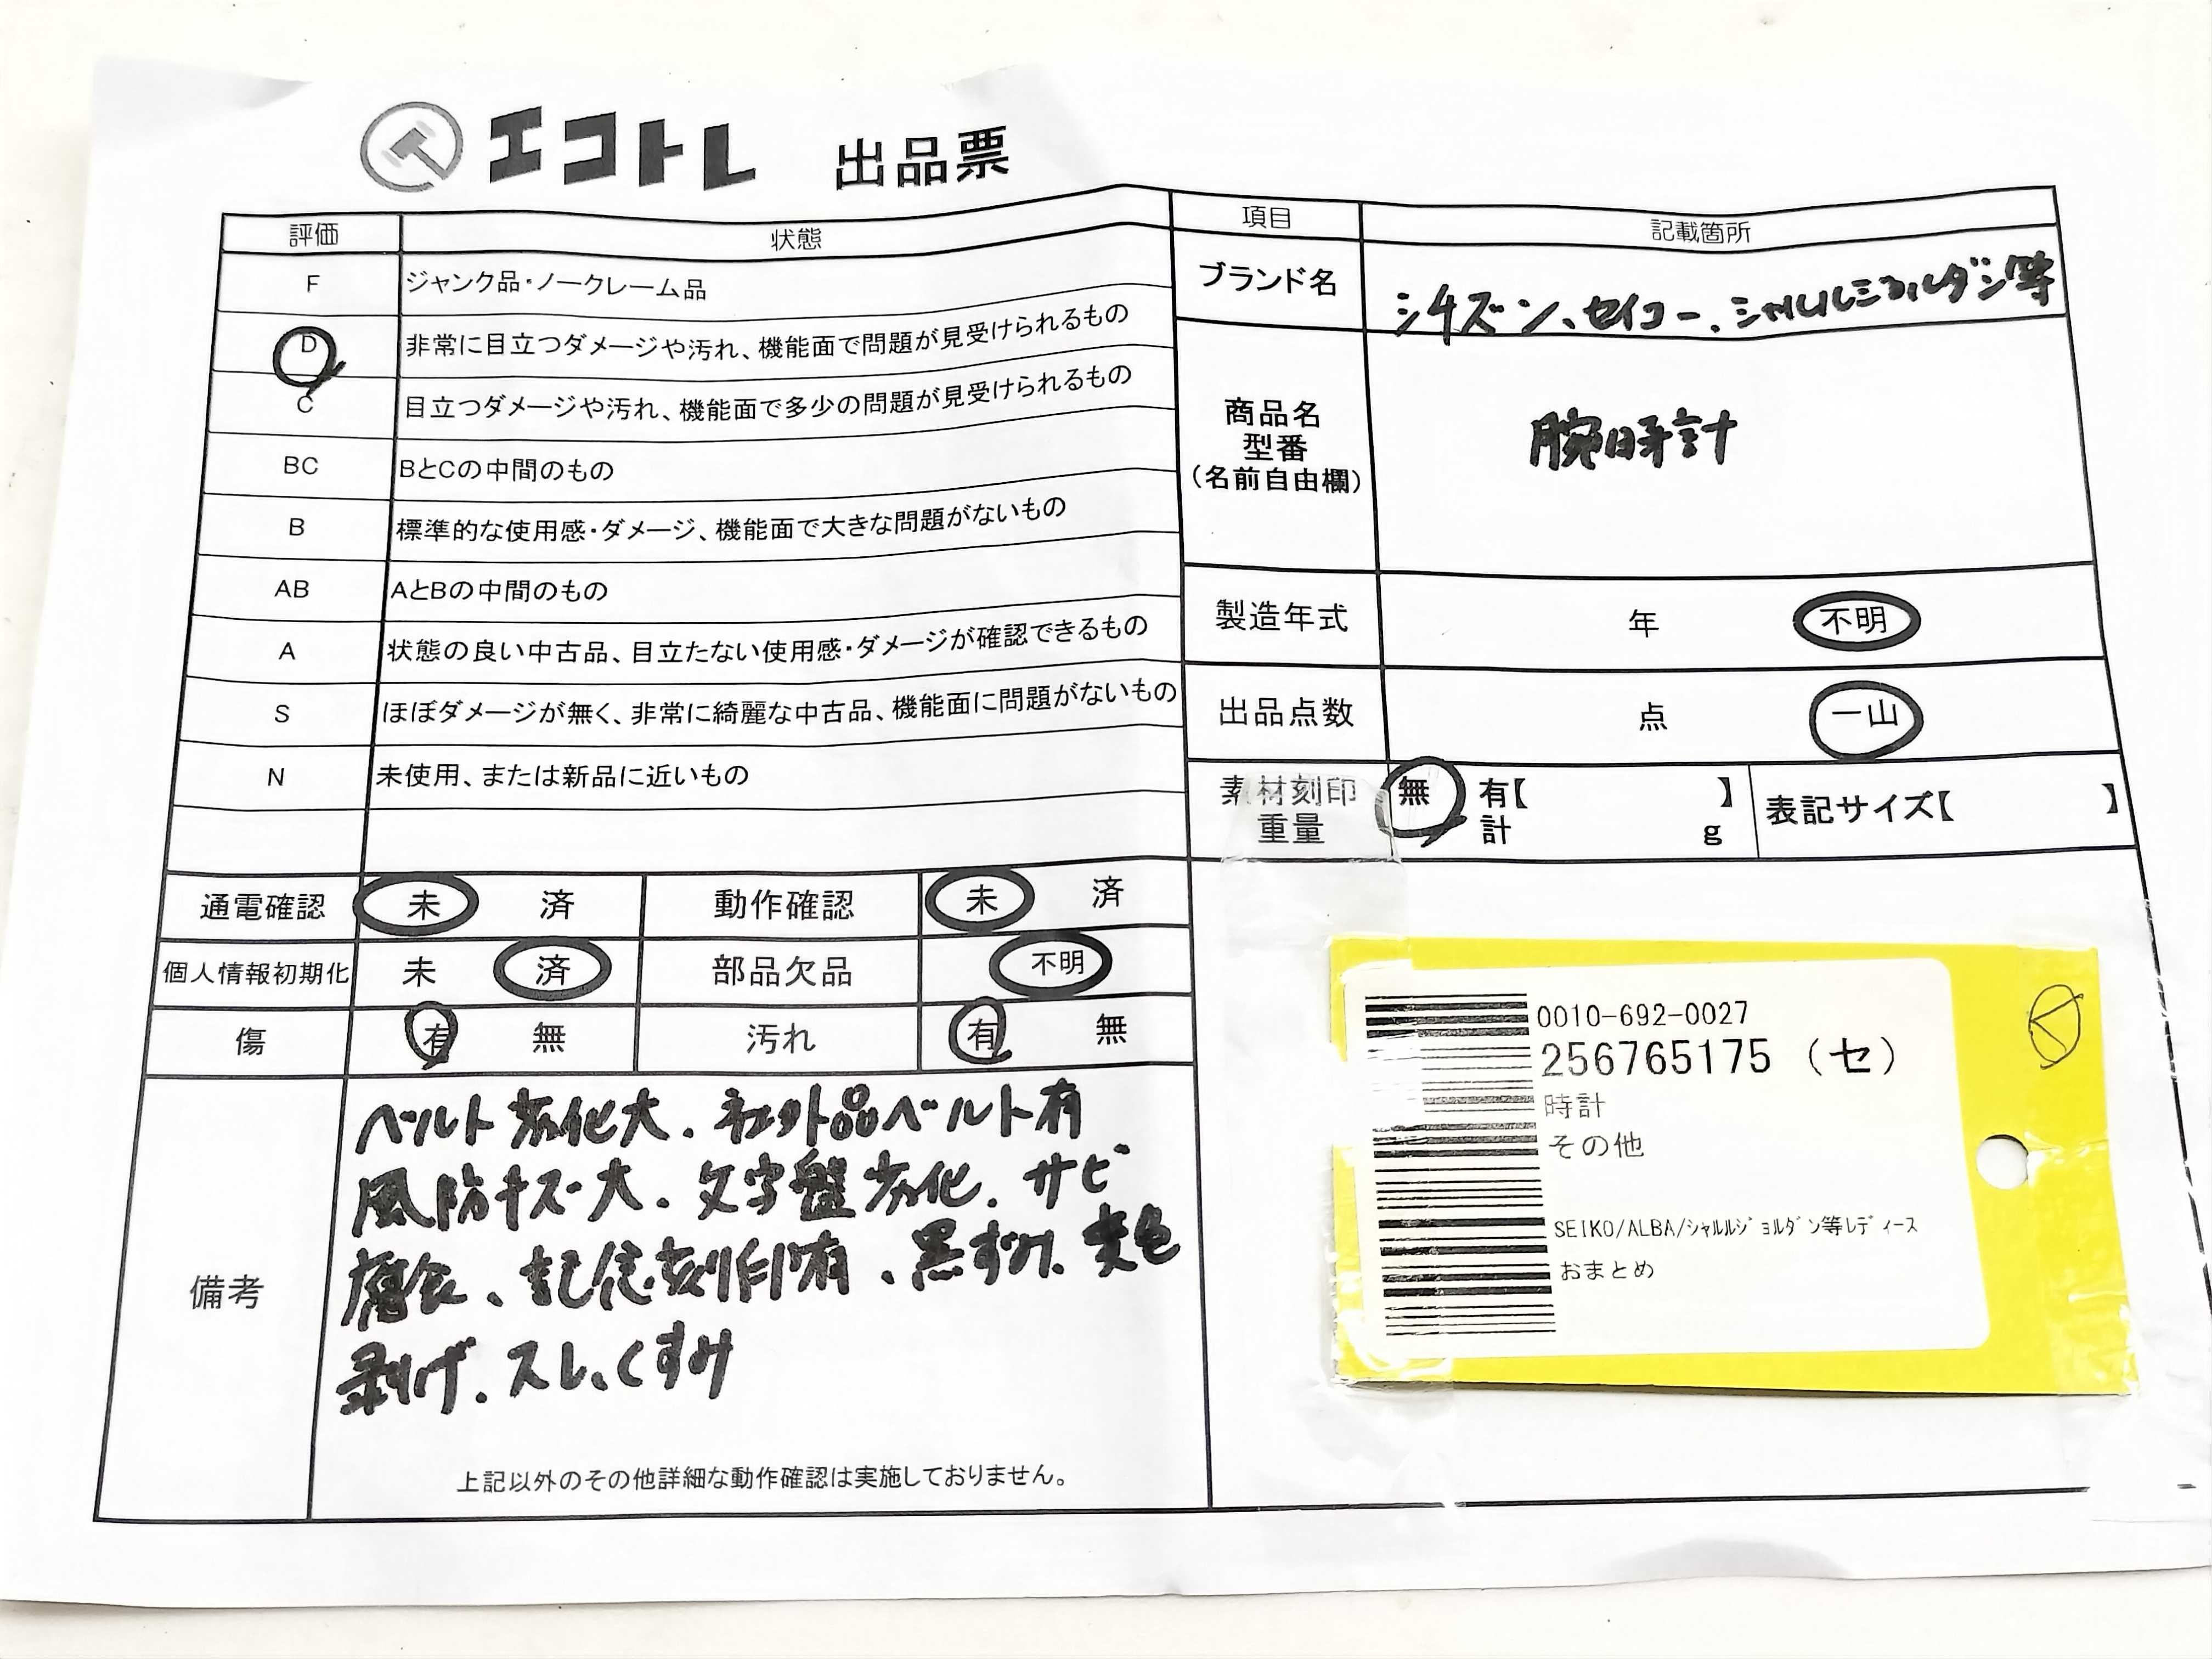 エコトレ 出品票
評価 状態
F ジャンク品・ノークレーム品
D 非常に目立つダメージや汚れ、機能面で問題が見受けられるもの
C 目立つダメージや汚れ、機能面で多少の問題が見受けられるもの
BC BとCの中間のもの
B 標準的な使用感・ダメージ、機能面で大きな問題がないもの
AB AとBの中間のもの
A 状態の良い中古品、目立たない使用感・ダメージが確認できるもの
S ほぼダメージが無く、非常に綺麗な中古品、機能面に問題がないもの
N 未使用、または新品に近いもの
通電確認 未 済 動作確認 未 済
個人情報初期化 未 済 部品欠品 不明
傷 有 無 汚れ 有 無
備考
ベルト劣化大、社外品ベルト有
風防キズ大、文字盤劣化、サビ
腐食、記念刻印有、黒ずみ、変色
剥げ、スレ、くすみ
上記以外のその他詳細な動作確認は実施しておりません。
項目 記載箇所
ブランド名 シチズン、セイコー、シャルルジョルダン等
商品名
型番
(名前自由欄)
腕時計
製造年式 年 不明
出品点数 点 一山
素材刻印 無 有【 】 表記サイズ【 】
重量 計 g
0010-692-0027
256765175 (セ)
時計
その他
SEIKO/ALBA/シャルルジョルダン等レディース
おまとめ